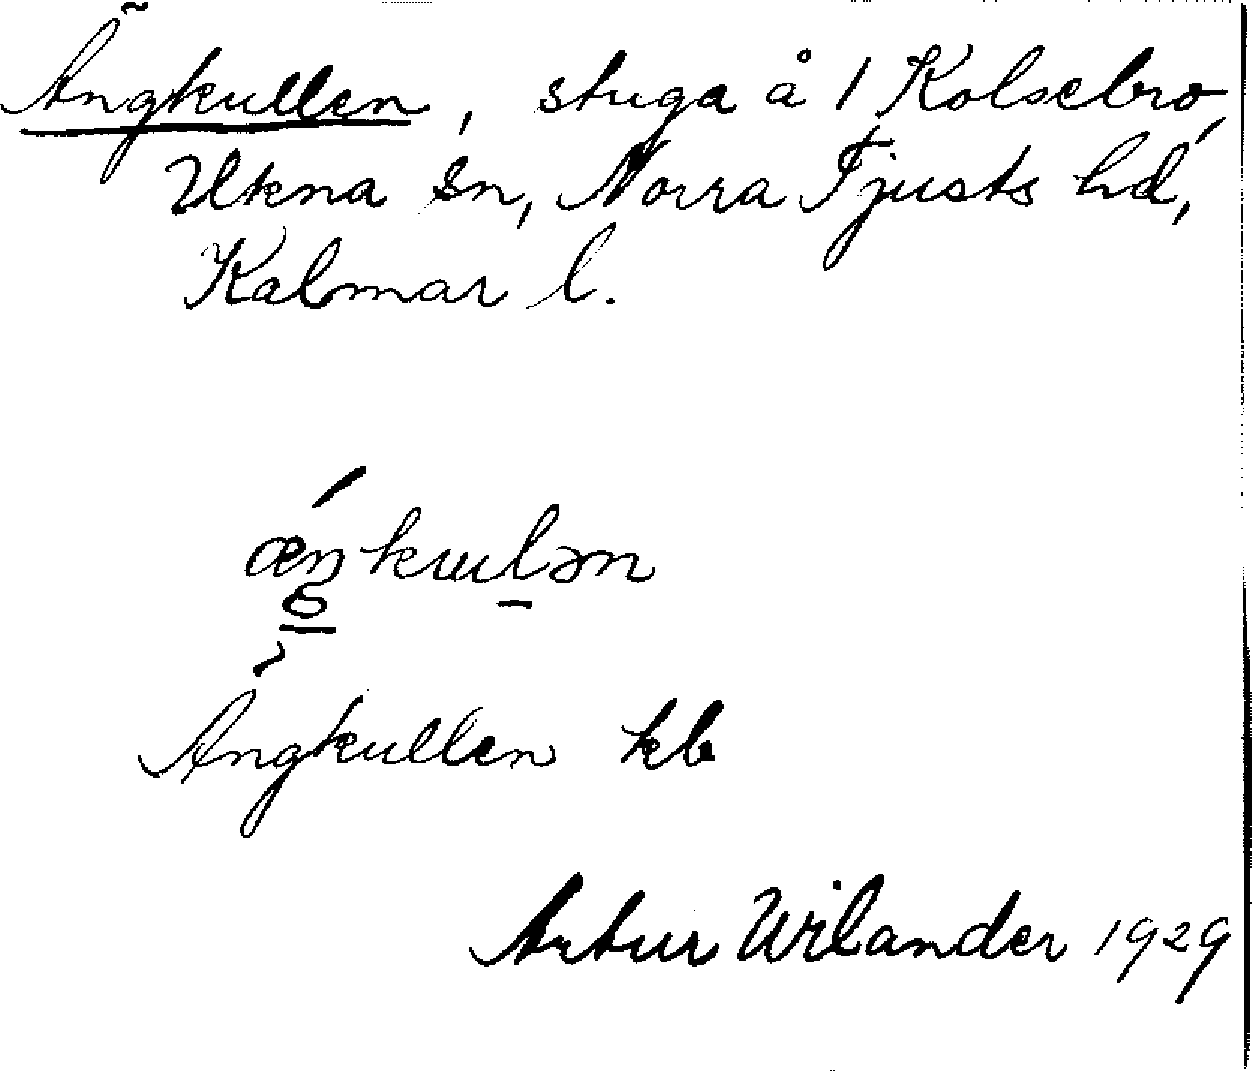 Ängkullen, stuga å 1 Kolsebro,
Ukna sn, Norra Tjusts hd,
Kalmar l.
ǽŋkuḻən
Ängkullen kb
Artur Wilander 1929